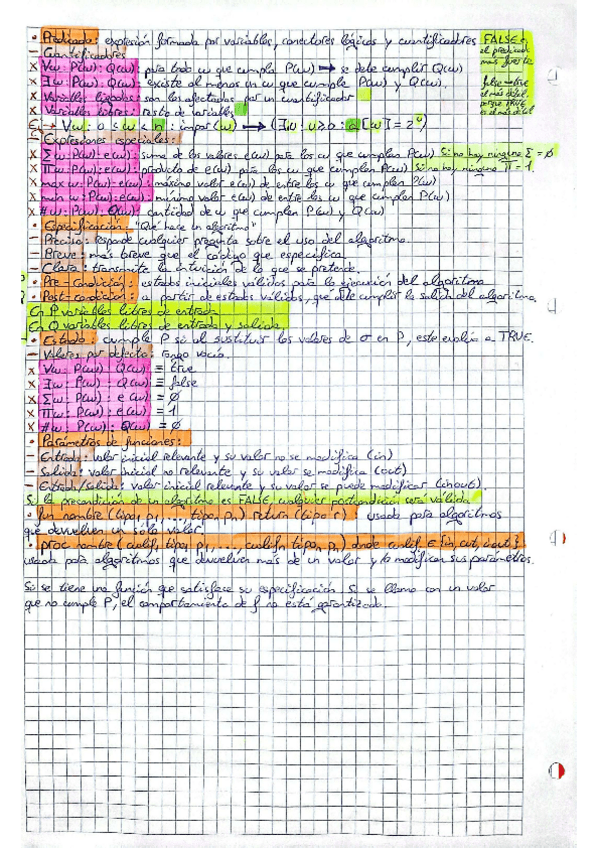 • Predicado: expresión formada por variables, conectores lógicos y cuantificadores
FALSE es
el predicado
más fuerte
false → true
el más débil
porque TRUE
es el más débil
– Cuantificadores
x ∀w: P(w): Q(w): para todo w que cumpla P(w) → se debe cumplir Q(w)
x ∃w: P(w): Q(w): existe al menos un w que cumple P(w) y Q(w).
x Variables ligadas: son las afectadas por un cuantificador
x Variables libres: resto de variables
→ ∀w: 0 ≤ w < n : impar(w) → (∃u: u ≥ 0 : a[w] = 2^u)
– Expresiones especiales:
x Σw: P(w): e(w): suma de los valores e(w) para los w que cumplan P(w) Si no hay ninguno Σ = ∅
x Πw: P(w): e(w): producto de e(w) para los w que cumplan P(w) Si no hay ninguno Π = 1
x max w: P(w): e(w): máximo valor e(w) de entre los w que cumplan P(w)
x min w: P(w): e(w): mínimo valor e(w) de entre los w que cumplan P(w)
x #w: P(w): Q(w): cantidad de w que cumplen P(w) y Q(w)
• Especificación: "Qué hace un algoritmo"
– Precisa: responde cualquier pregunta sobre el uso del algoritmo.
– Breve: más breve que el código que especifica.
– Clara: transmite la intuición de lo que se pretende.
• Pre-condición: estados iniciales válidos para la ejecución del algoritmo
• Post-condición: a partir de estados válidos, qué debe cumplir la salida del algoritmo.
En P variables libres de entrada
En Q variables libres de entrada y salida
• Estado: cumple P si al sustituir los valores de σ en P, este evalúa a TRUE.
– Valores por defecto: rango vacío.
x ∀w: P(w): Q(w) ≡ true
x ∃w: P(w): Q(w) ≡ false
x Σw: P(w): e(w) = ∅
x Πw: P(w): e(w) = 1
x #w: P(w): Q(w) = ∅
• Parámetros de funciones:
– Entrada: valor inicial relevante y su valor no se modifica (in)
– Salida: valor inicial no relevante y su valor se modifica (out)
– Entrada/Salida: valor inicial relevante y su valor se puede modificar (inout).
Si la precondición de un algoritmo es FALSE, cualquier postcondición será válida
• fun nombre (tipo₁ p₁, ..., tipoₙ pₙ) return (tipo r) usada para algoritmos
que devuelvan un solo valor
• proc nombre (cualif₁ tipo₁ p₁, ..., cualifₙ tipoₙ pₙ) donde cualif ∈ {in, out, inout}
usada para algoritmos que devuelvan más de un valor y/o modifican sus parámetros.
Si se tiene una función que satisface su especificación. Si se llama con un valor
que no cumple P, el comportamiento de f no está garantizado.